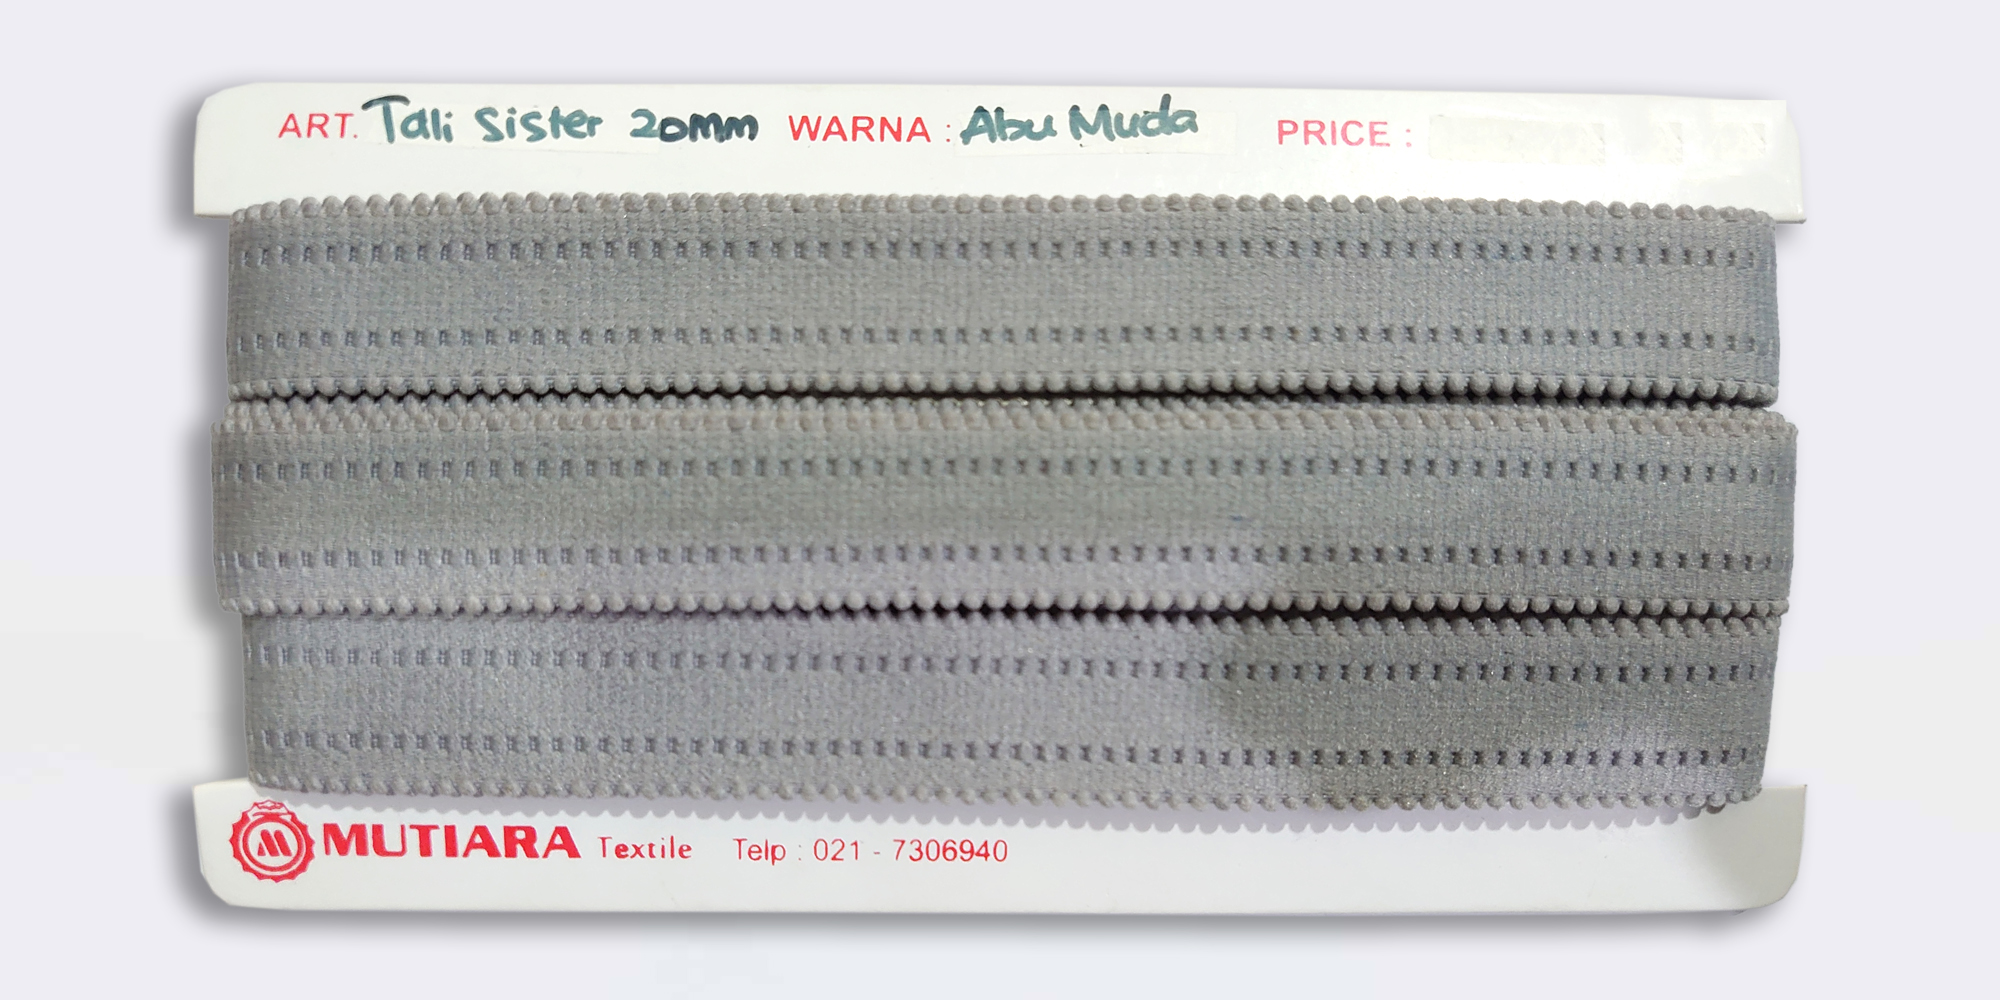 ART. Tali Sister 20mm WARNA : Abu Muda PRICE :
MUTIARA Textile Telp : 021 - 7306940